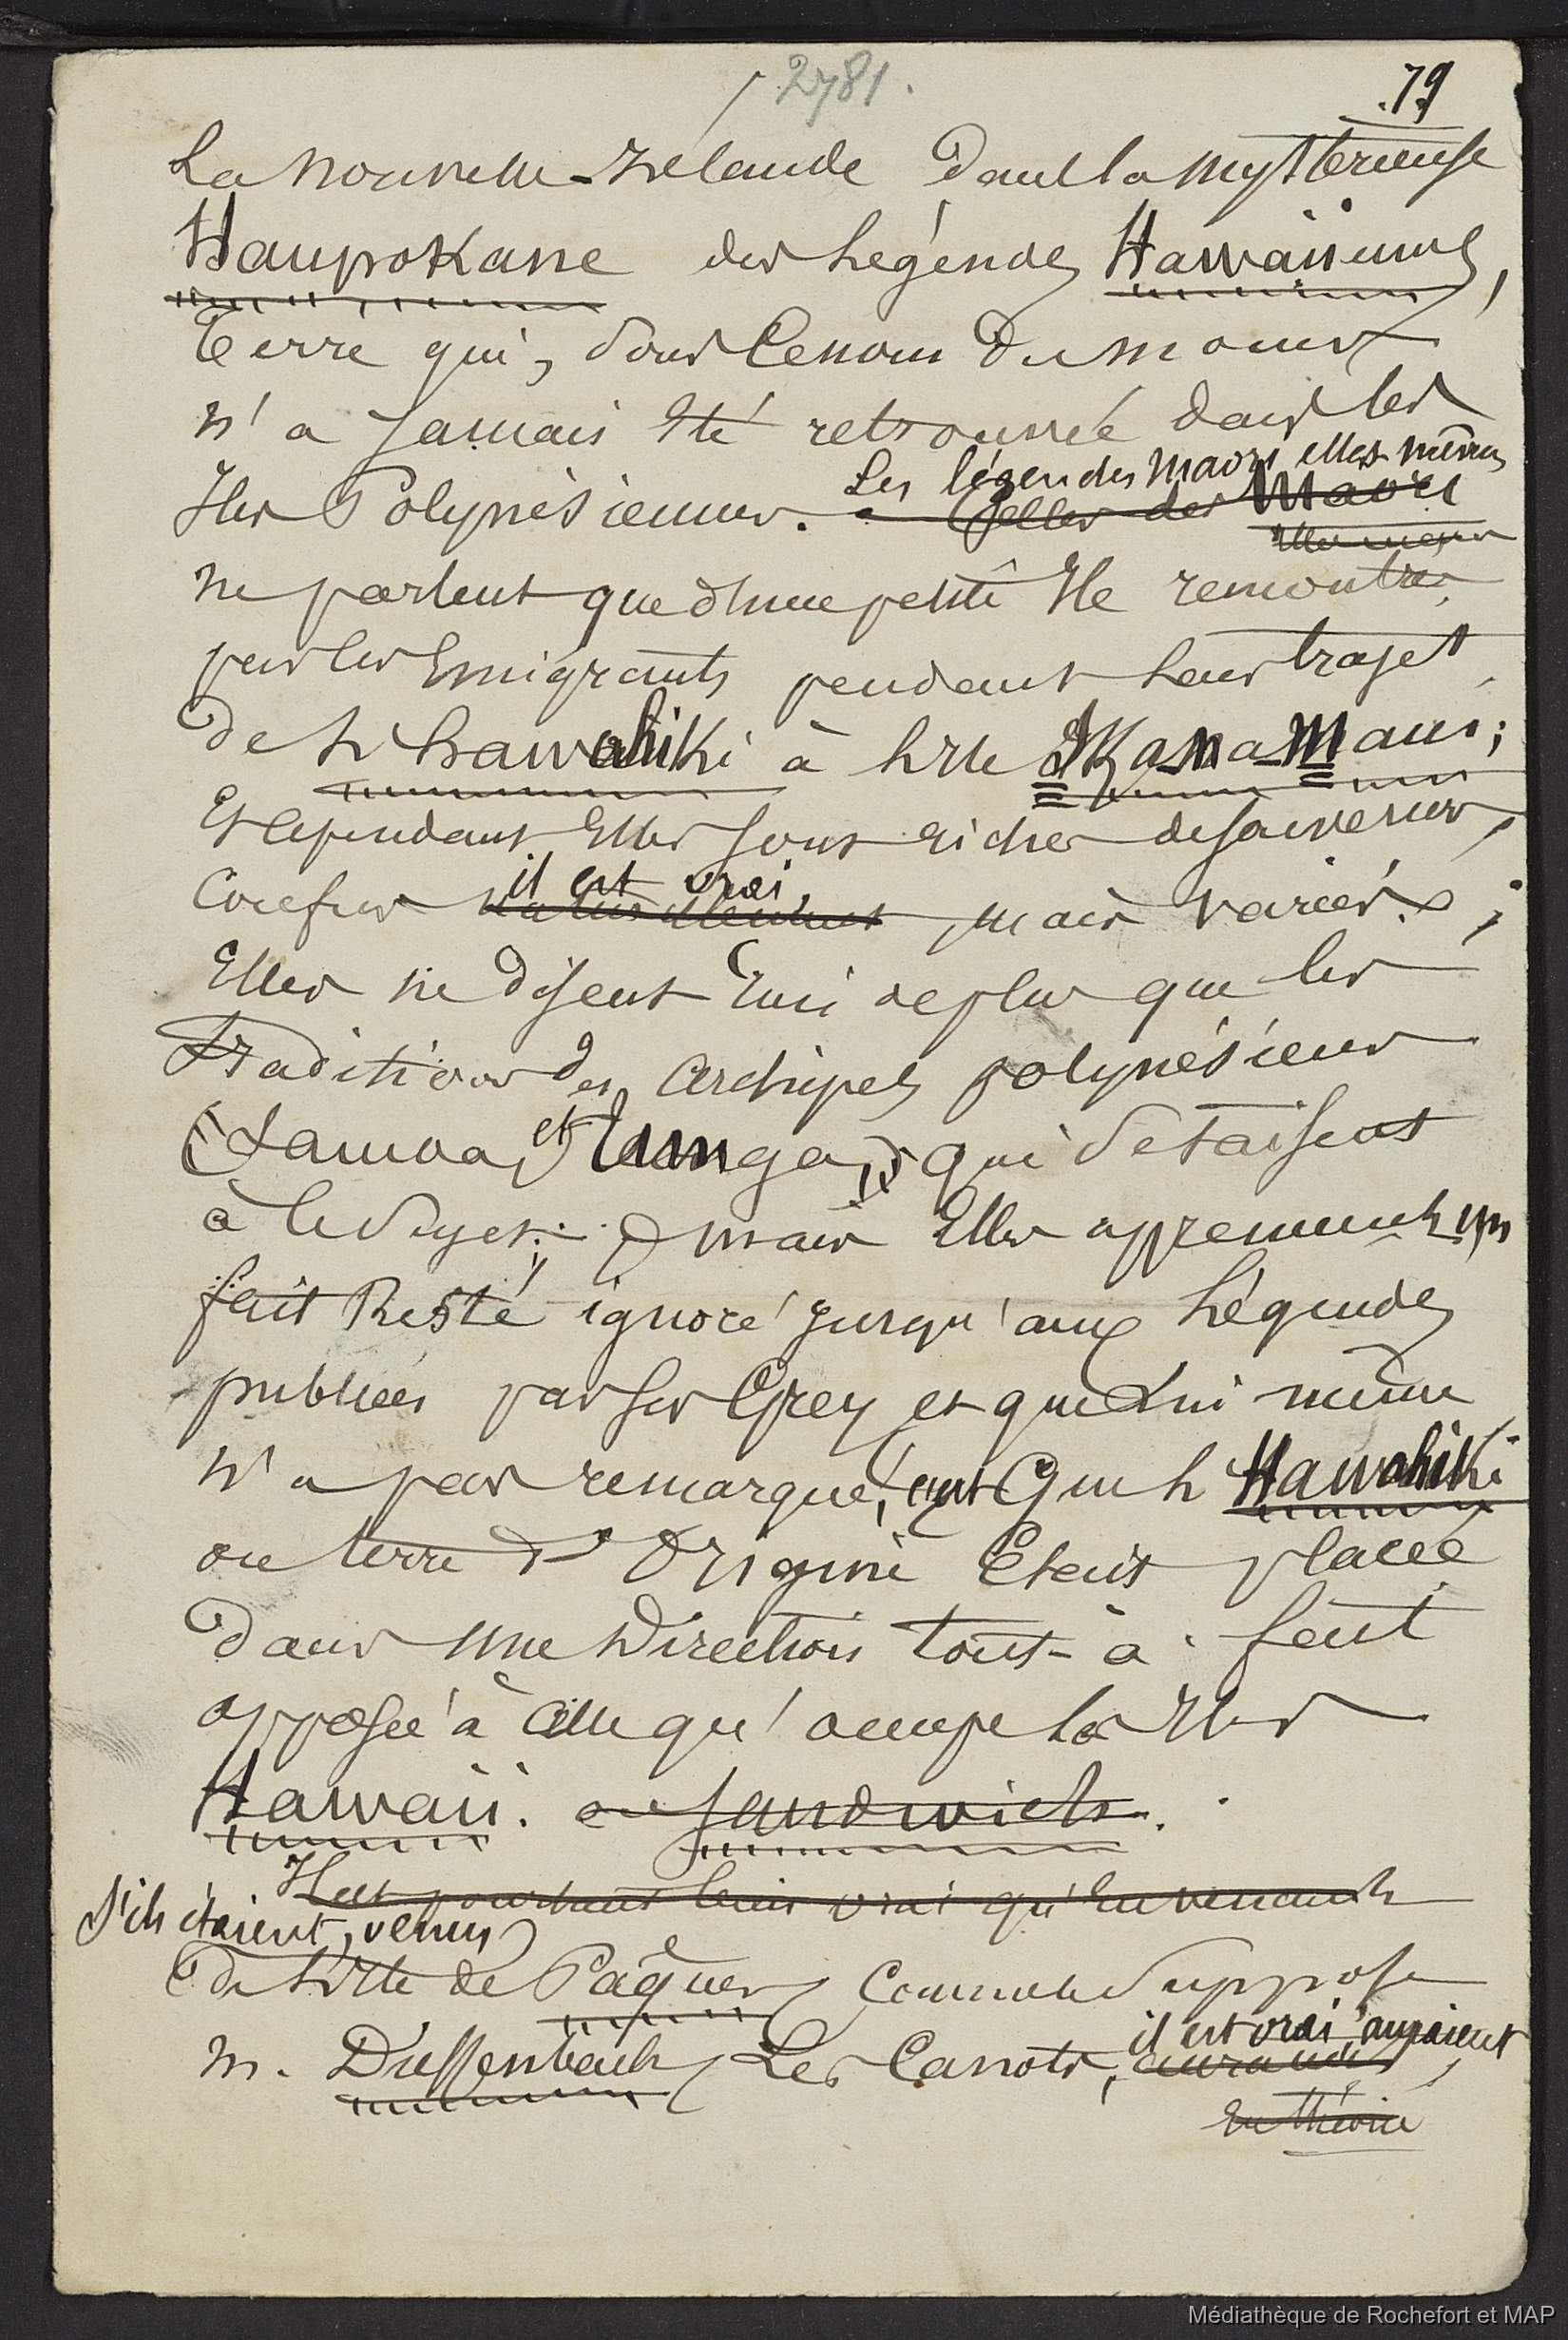 2781.
79
La Nouvelle-Zélande dans la mystérieuse
Haupokane des Légendes Hawaiiennes,
terre qui, sous ce nom du moins
n'a jamais été retrouvée dans les
Iles Polynésiennes. Les légendes Maori elles-mêmes
Celles des Maori
elles-mêmes
ne parlent que d'une petite Ile rencontrée
par les Emigrants pendant leur trajet
de L'hawahiki à L'Ile d'Ika-na-Maui;
Et cependant Elles sont riches de souvenirs,
Confus il est vrai, mais variés;
Elles ne disent rien de plus que les
traditions des archipels polynésiens
(Samoa et Tunga) qui se taisent
à ce sujet; mais Elles apprennent un
fait Resté ignoré jusqu'aux Légendes
publiées par Sir Grey et que Lui même
n'a pas remarqué, c'est Que L'Hawahiki
ou terre d'Origine Etait placée
dans une direction tout-à-fait
opposée à celle qu'occupe les Iles
Hawaii. ou Sandwich.
Il est pourtant bien vrai qu'en venant
S'ils étaient venus
de L'Ile de Pâques, Comme le suppose
M. Dieffenbach, Les Canots, il est vrai, auraient
auraient,
en théorie
Médiathèque de Rochefort et MAP